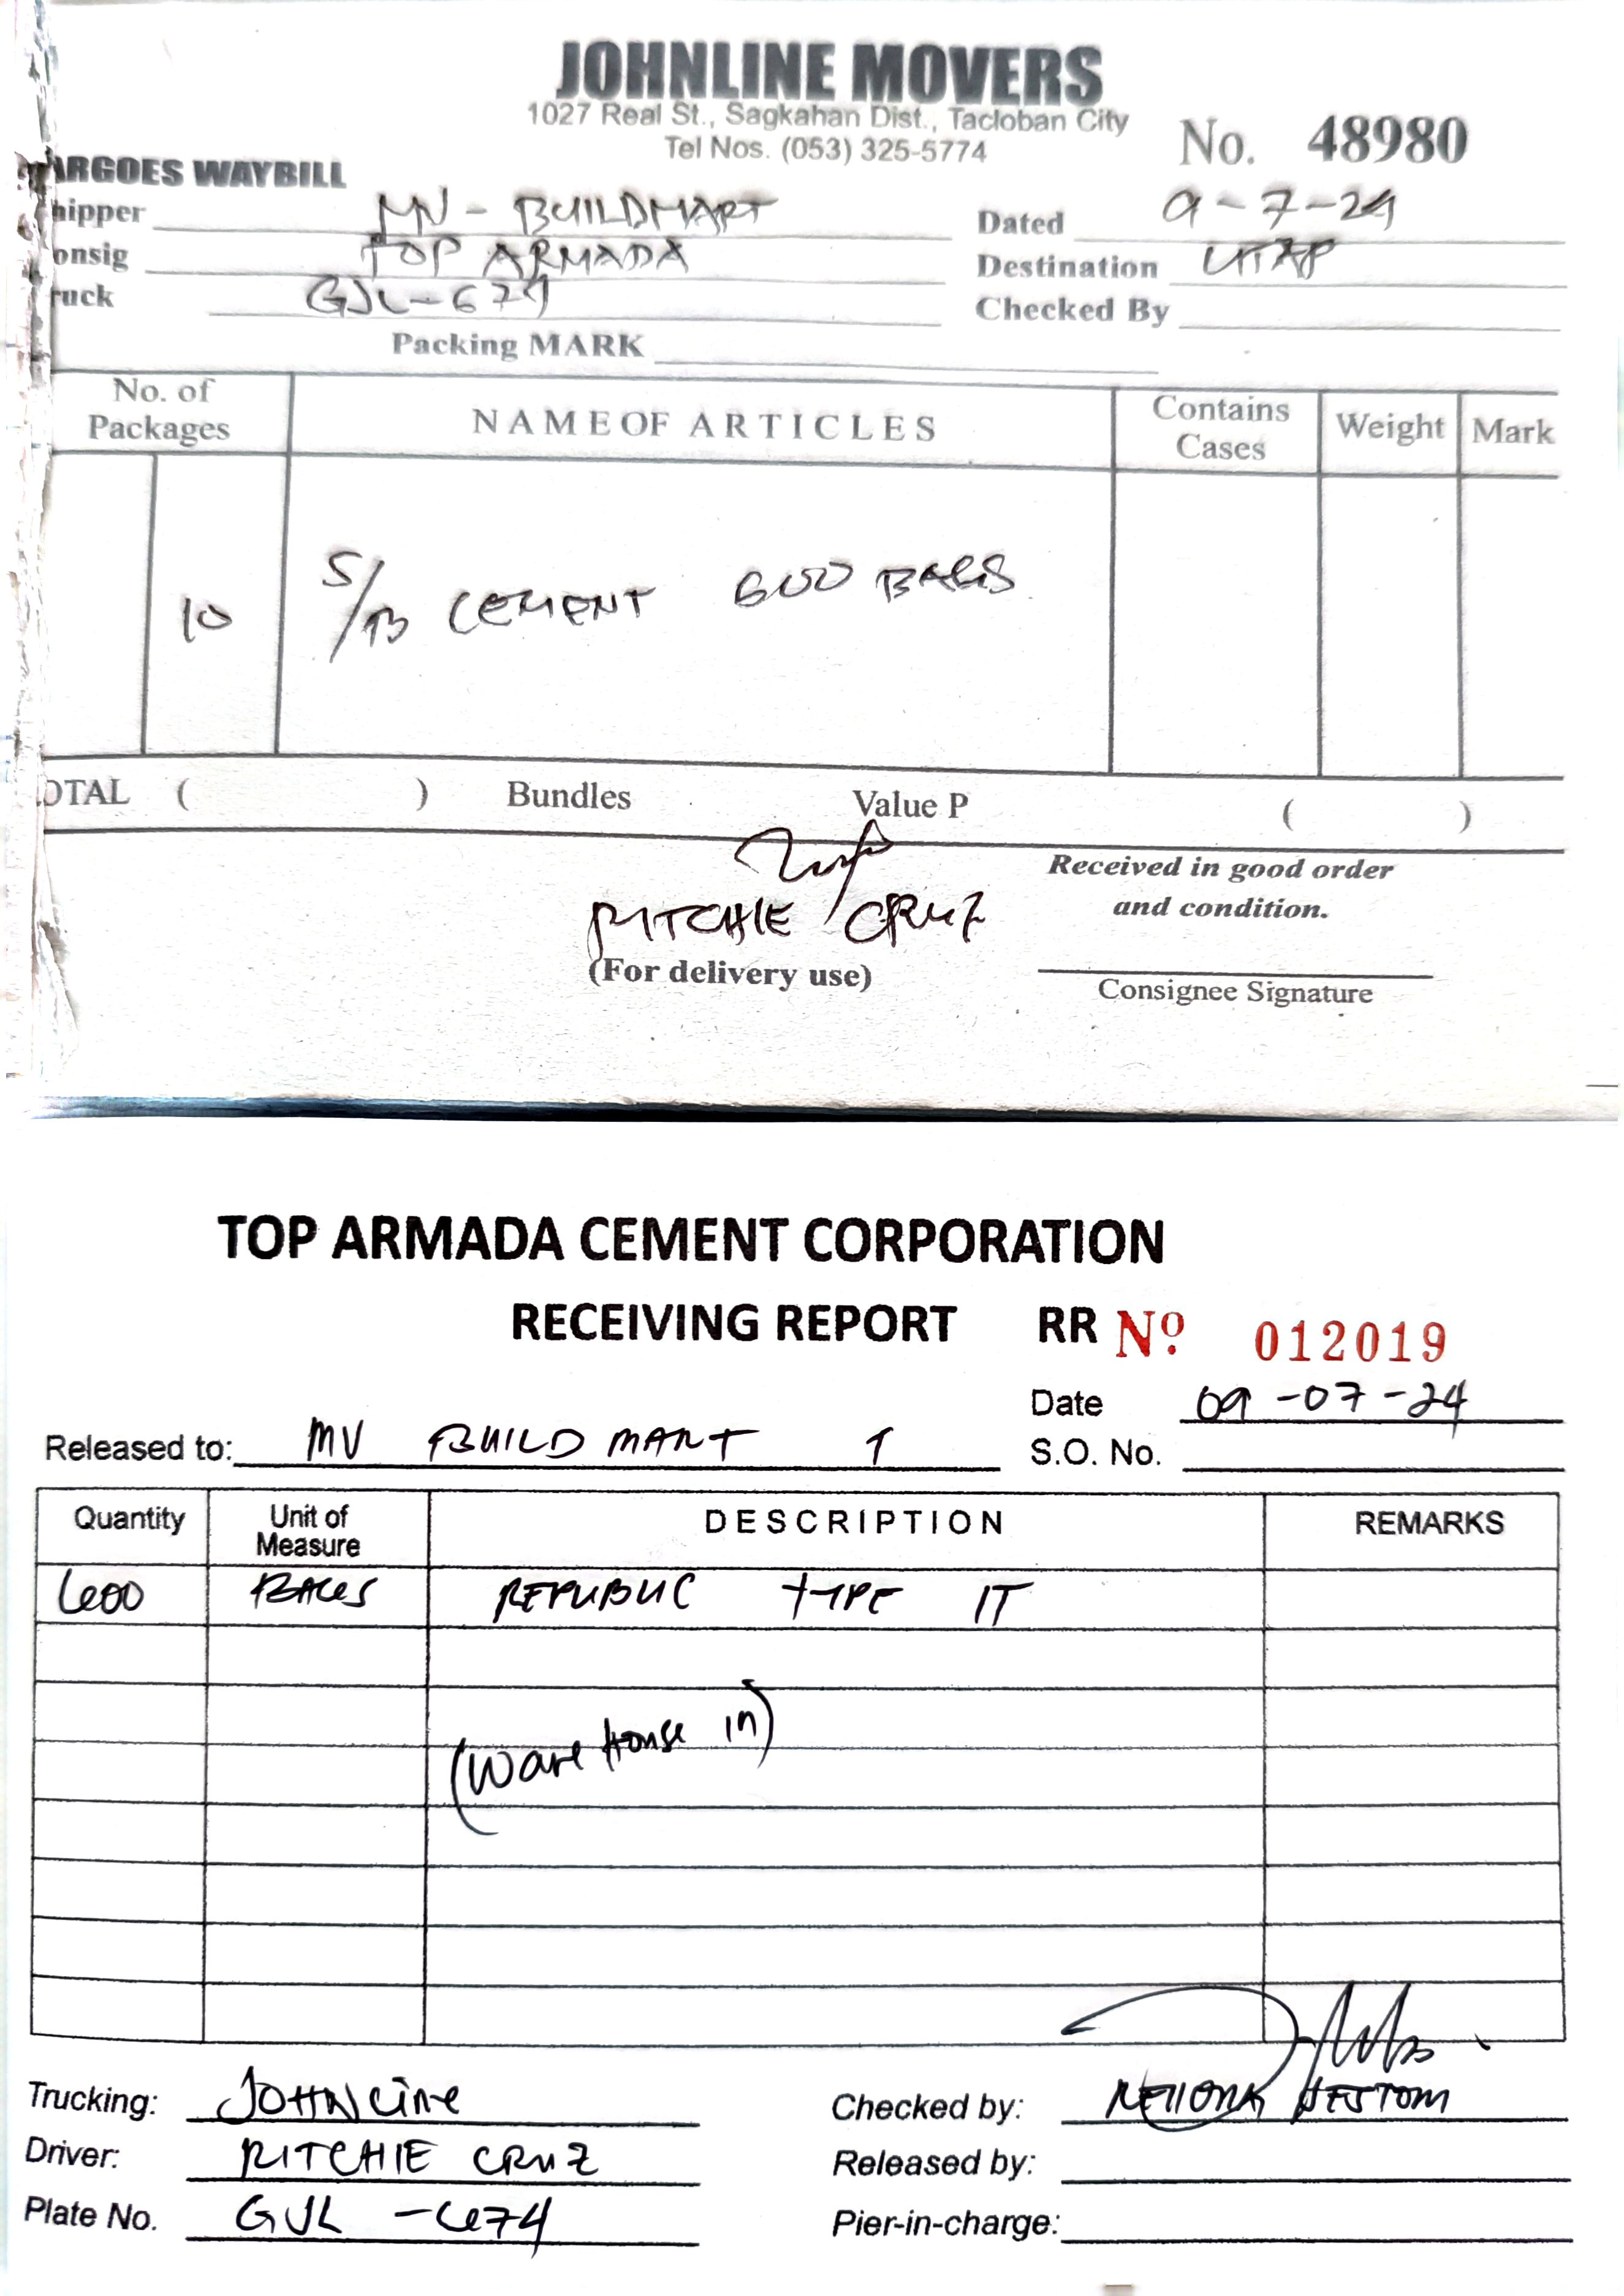 JOHNLINE MOVERS
1027 Real St., Sagkahan Dist., Tacloban City
Tel Nos. (053) 325-5774
No. 48980
ARGOES WAYBILL
hipper MV - BUILDMART
Dated 9-7-24
onsig TOP ARMADA
Destination UTAP
ruck GJL-674
Checked By
Packing MARK
No. of Packages NAME OF ARTICLES Contains Cases Weight Mark
10 S/B CEMENT 600 BAGS
OTAL ( ) Bundles Value P ( )
RITCHIE CRUZ
(For delivery use)
Received in good order
and condition.
Consignee Signature
TOP ARMADA CEMENT CORPORATION
RECEIVING REPORT RR No. 012019
Date 09-07-24
Released to: MV BUILDMART 1
S.O. No.
Quantity Unit of Measure DESCRIPTION REMARKS
600 BAGS REPUBLIC TYPE 1T
(Ware House in)
Trucking: JOHNLINE
Checked by:
Driver: RITCHIE CRUZ
Released by:
Plate No. GJL-674
Pier-in-charge: